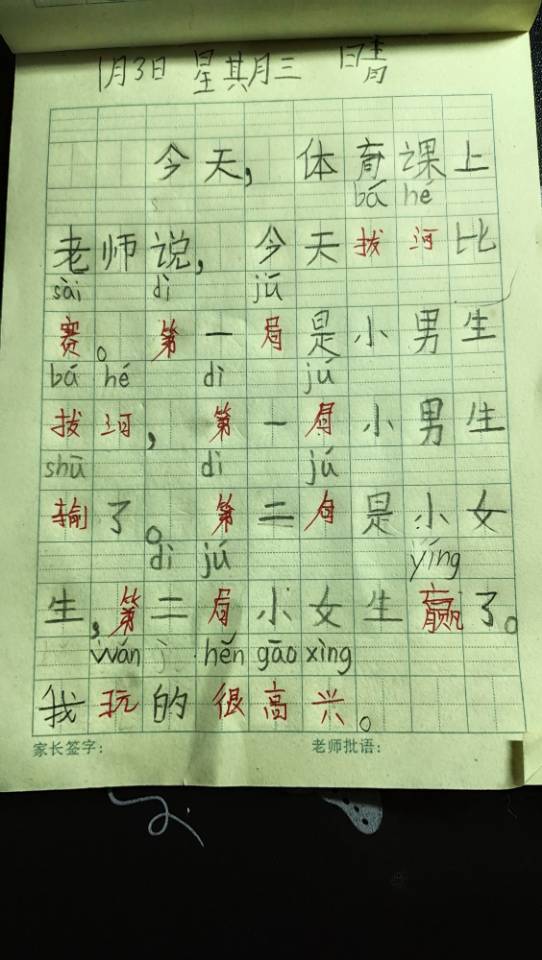 1月3日 星期三 晴
今天，体育课上
bá hé
老师说，今天拔河比
sài dì jú
赛。第一局是小男生
bá hé dì jú
拔河，第一局小男生
shū dì jú
输了。第二局是小女
dì jú yíng
生，第二局小女生赢了。
wán hěn gāo xìng
我玩的很高兴。
家长签字： 老师批语：